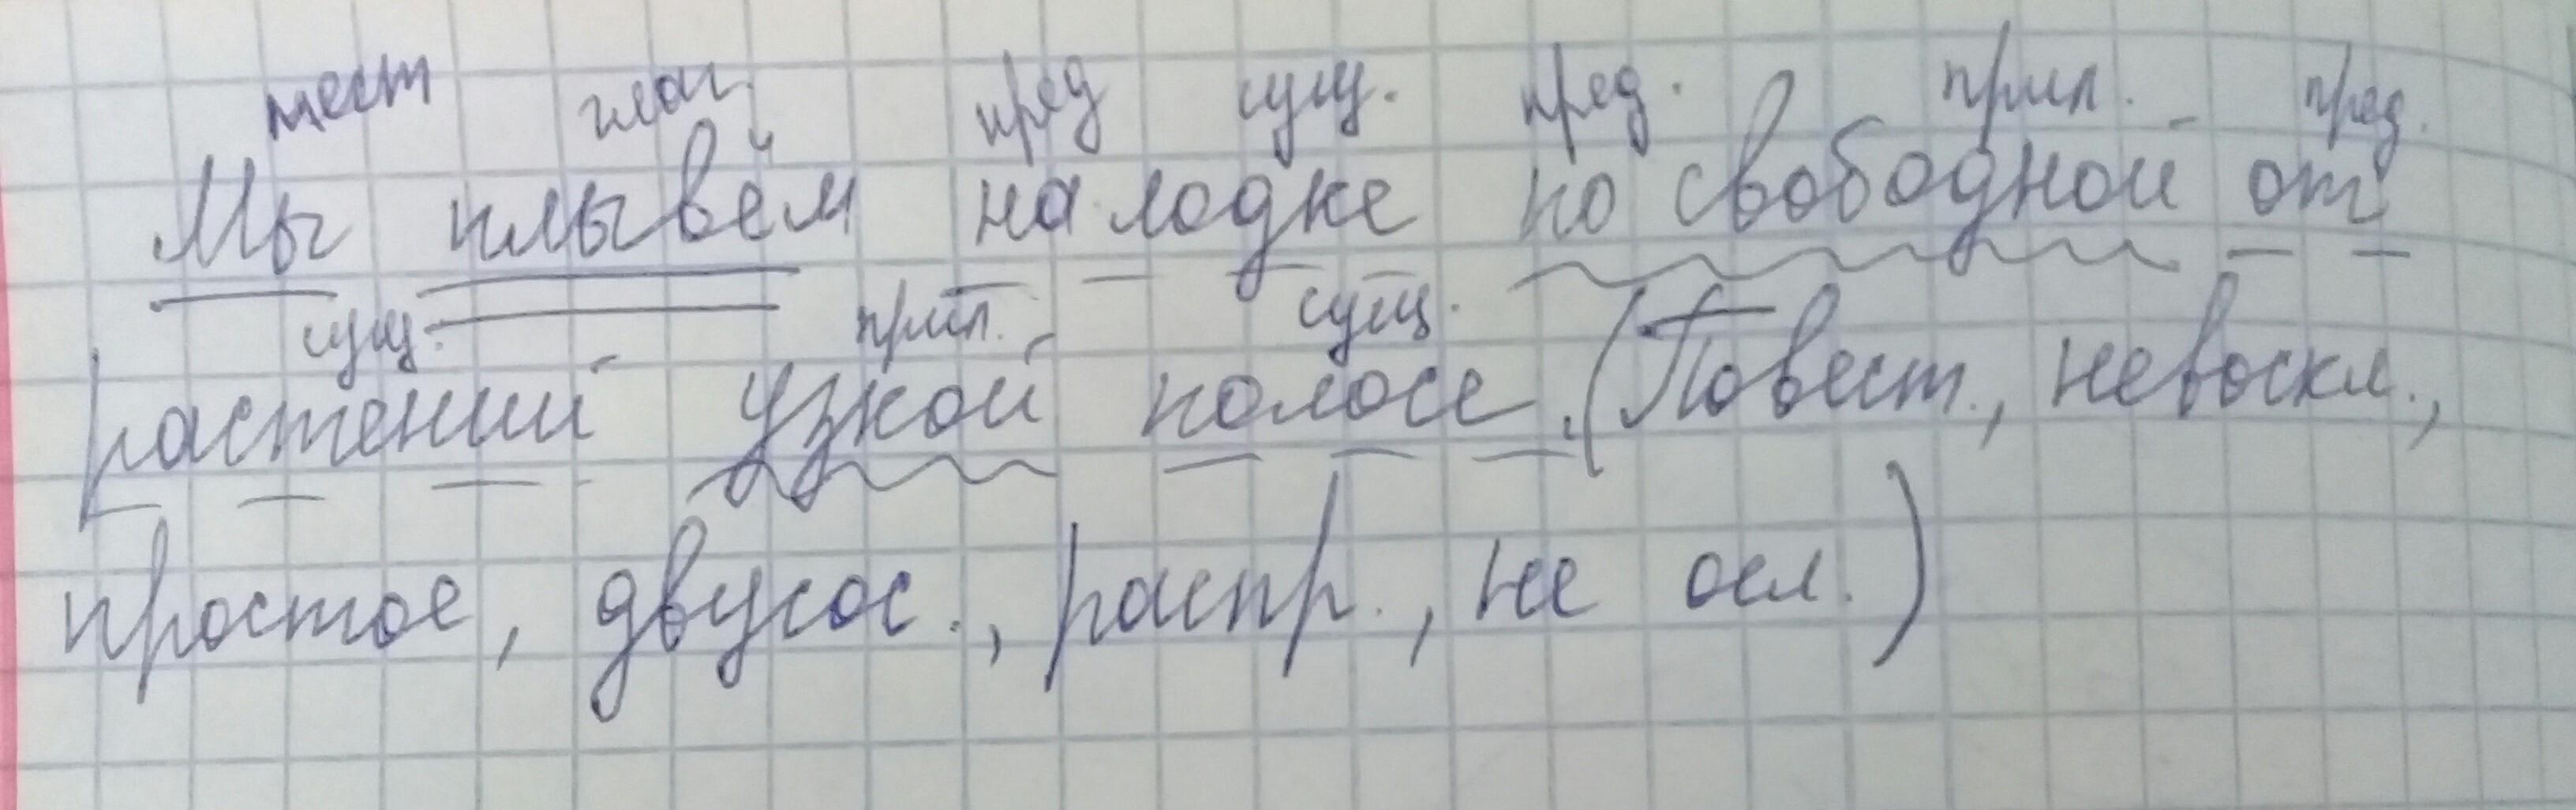 мест глаг. пред сущ. пред. прил. пред.
Мы плывём на лодке по свободной от
сущ. прил. сущ.
растений узкой полосе. (Повест., невоскл.,
простое, двусос., распр., не осл.)